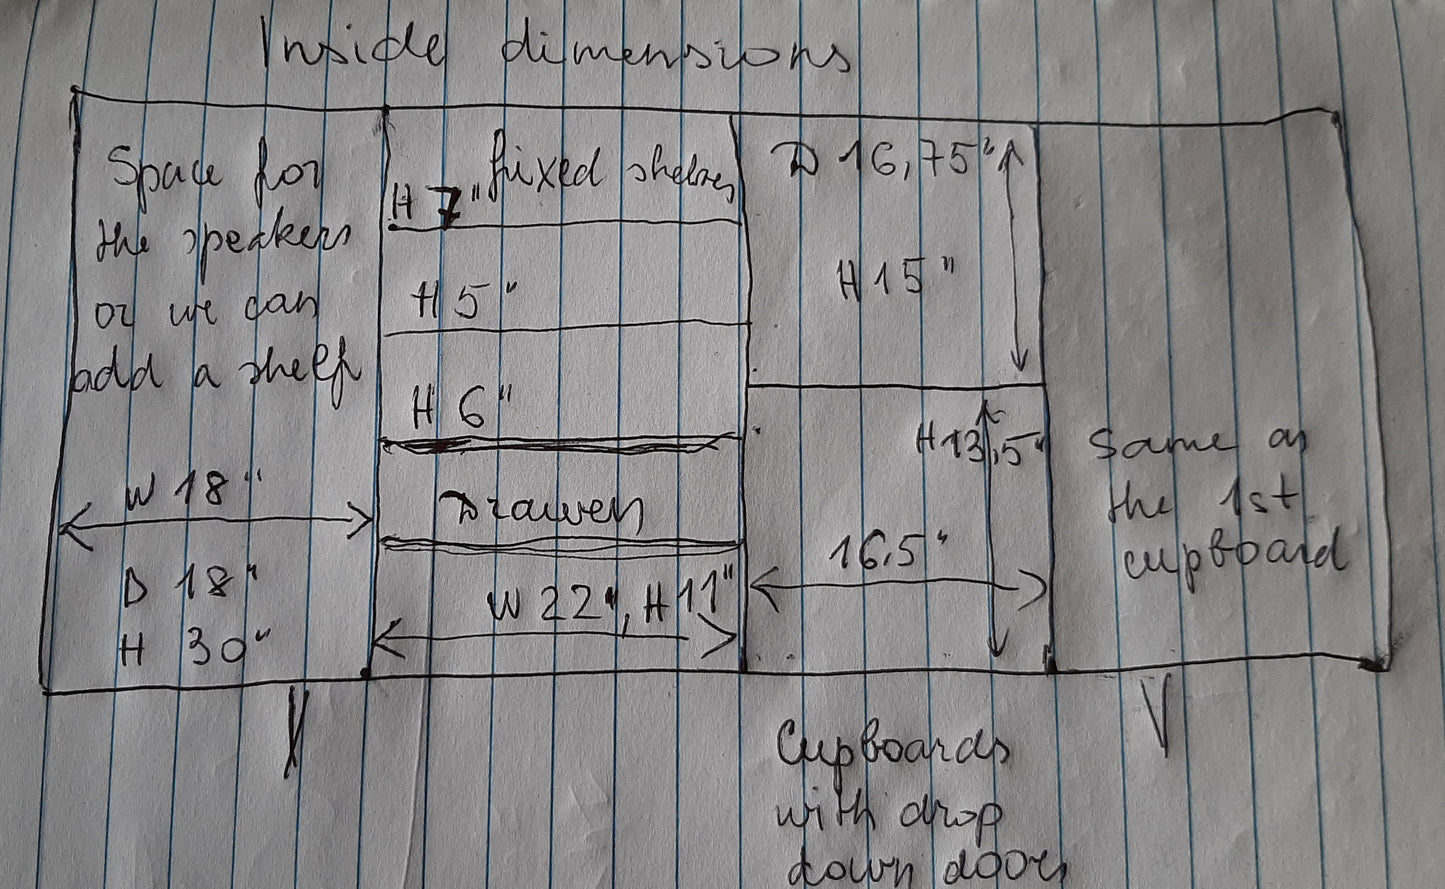 Inside dimensions
Space for
the speakers
or we can
add a shelf
W 18"
D 18"
H 30"
fixed shelves
H 7"
H 5"
H 6"
Drawer
W 22", H 11"
D 16,75"
H 15"
H 13,5"
16.5"
Same as
the 1st
cupboard
Cupboards
with drop
down doors